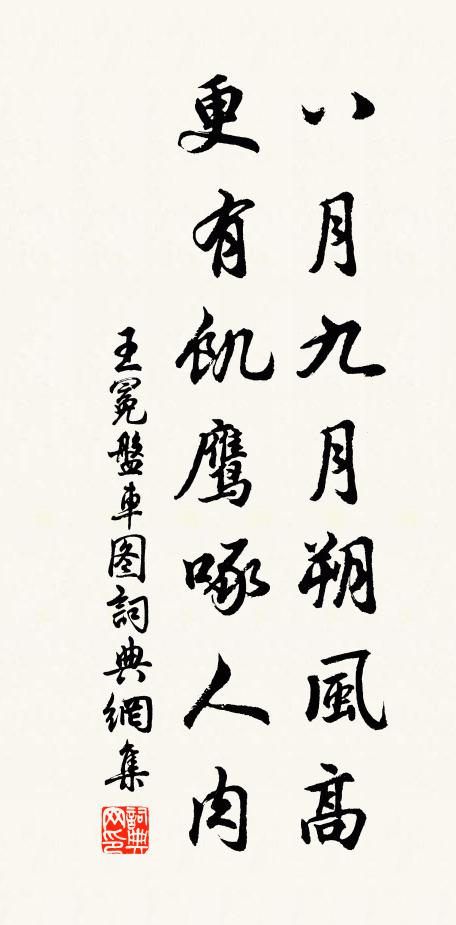 八月九月朔風高
更有飢鷹啄人肉
王冕盤車图詞典網集
詞典網印